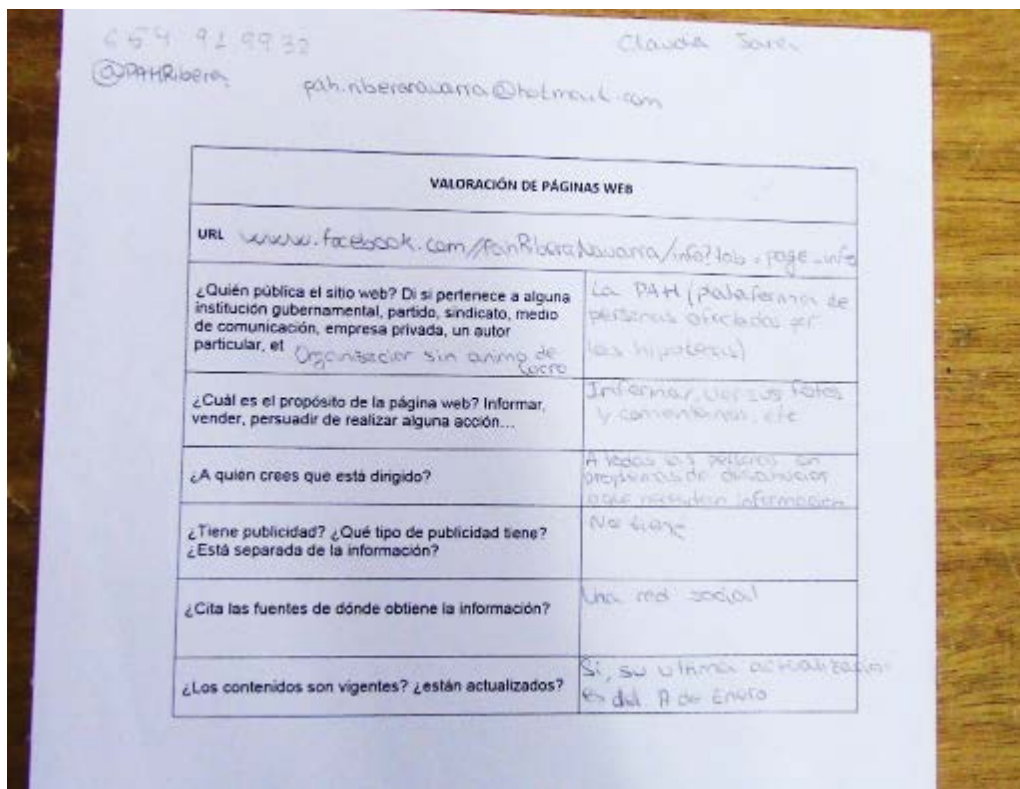 654 919932
Claudia
@PAHRibera
pah.riberanavarra@hotmail.com
VALORACIÓN DE PÁGINAS WEB
URL www.facebook.com/PahRiberaNavarra/info?tab=page_info
¿Quién pública el sitio web? Di si pertenece a alguna
institución gubernamental, partido, sindicato, medio
de comunicación, empresa privada, un autor
particular, et Organización sin animo de
lucro
La PAH (plataforma de
personas afectadas por
las hipotecas)
¿Cuál es el propósito de la página web? Informar,
vender, persuadir de realizar alguna acción...
Informar, ver sus fotos
y comentarios, etc
¿A quién crees que está dirigido?
A todas las personas con
problemas de desahucios
o que necesitan información
¿Tiene publicidad? ¿Qué tipo de publicidad tiene?
¿Está separada de la información?
No tiene
¿Cita las fuentes de dónde obtiene la información?
Una red social
¿Los contenidos son vigentes? ¿están actualizados?
Si, su ultima actualización
es del de Enero